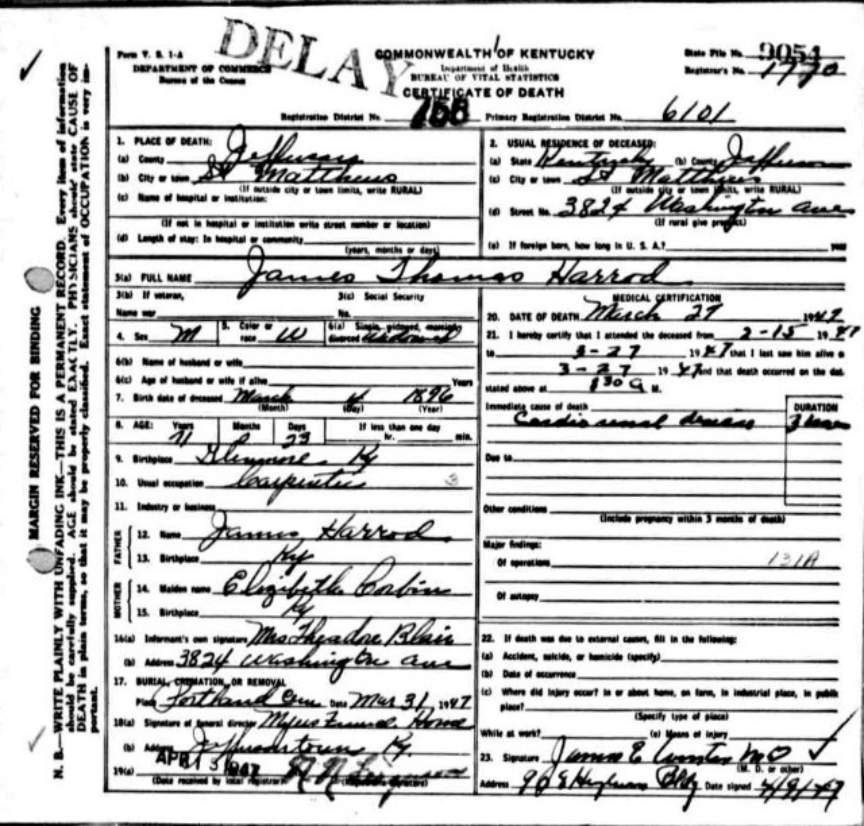 DELAY
Form V. S. 1-A
DEPARTMENT OF COMMERCE
Bureau of the Census
COMMONWEALTH OF KENTUCKY
Department of Health
BUREAU OF VITAL STATISTICS
CERTIFICATE OF DEATH
State File No. 9054
Registrar's No. 1770
Registration District No. 158 Primary Registration District No. 6101
MARGIN RESERVED FOR BINDING
N. B.—WRITE PLAINLY WITH UNFADING INK—THIS IS A PERMANENT RECORD. Every item of information
should be carefully supplied. AGE should be stated EXACTLY. PHYSICIANS should state CAUSE OF
DEATH in plain terms, so that it may be properly classified. Exact statement of OCCUPATION is very im-
portant.
1. PLACE OF DEATH:
(a) County Jefferson
(b) City or town St Matthews
(If outside city or town limits, write RURAL)
(c) Name of hospital or institution:
(If not in hospital or institution write street number or location)
(d) Length of stay: In hospital or community
(years, months or days)
2. USUAL RESIDENCE OF DECEASED:
(a) State Kentucky (b) County Jefferson
(c) City or town St Matthews
(If outside city or town limits, write RURAL)
(d) Street No. 3824 Washington ave
(If rural give precinct)
(e) If foreign born, how long in U. S. A.? year
3(a) FULL NAME James Thomas Harrod
3(b) If veteran, 3(c) Social Security
Name war No.
4. Sex M 5. Color or race W 6(a) Single, widowed, married, divorced Widowed
6(b) Name of husband or wife
6(c) Age of husband or wife if alive Years
7. Birth date of deceased March 4 1896
(Month) (Day) (Year)
8. AGE: Years Months Days If less than one day
71 23 hr. min.
9. Birthplace Glenmore Ky
10. Usual occupation Carpenter
11. Industry or business
FATHER
12. Name James Harrod
13. Birthplace Ky
MOTHER
14. Maiden name Elizabeth Corbin
15. Birthplace Ky
16(a) Informant's own signature Mrs Theodore Blair
(b) Address 3824 Washington ave
17. BURIAL, CREMATION, OR REMOVAL
Place Portland Cem Date Mar 31, 1947
18(a) Signature of funeral director Myers Funeral Home
(b) Address Jeffersontown Ky.
19(a) APR 1947
(Date received by local registrar) (Registrar's signature)
MEDICAL CERTIFICATION
20. DATE OF DEATH March 27 1947
21. I hereby certify that I attended the deceased from 2-15 1947
to 3-27 1947 that I last saw him alive o
3-27 1947 and that death occurred on the dat
stated above at 830 A M.
Immediate cause of death DURATION
Cardio renal disease
Due to
Other conditions
(Include pregnancy within 3 months of death)
Major findings:
Of operations 131A
Of autopsy
22. If death was due to external causes, fill in the following:
(a) Accident, suicide, or homicide (specify)
(b) Date of occurrence
(c) Where did injury occur? In or about home, on farm, in industrial place, in public
place?
(Specify type of place)
While at work? (e) Means of injury
23. Signature James E MD
(M. D. or other)
Address Bldg Date signed 4/9/47